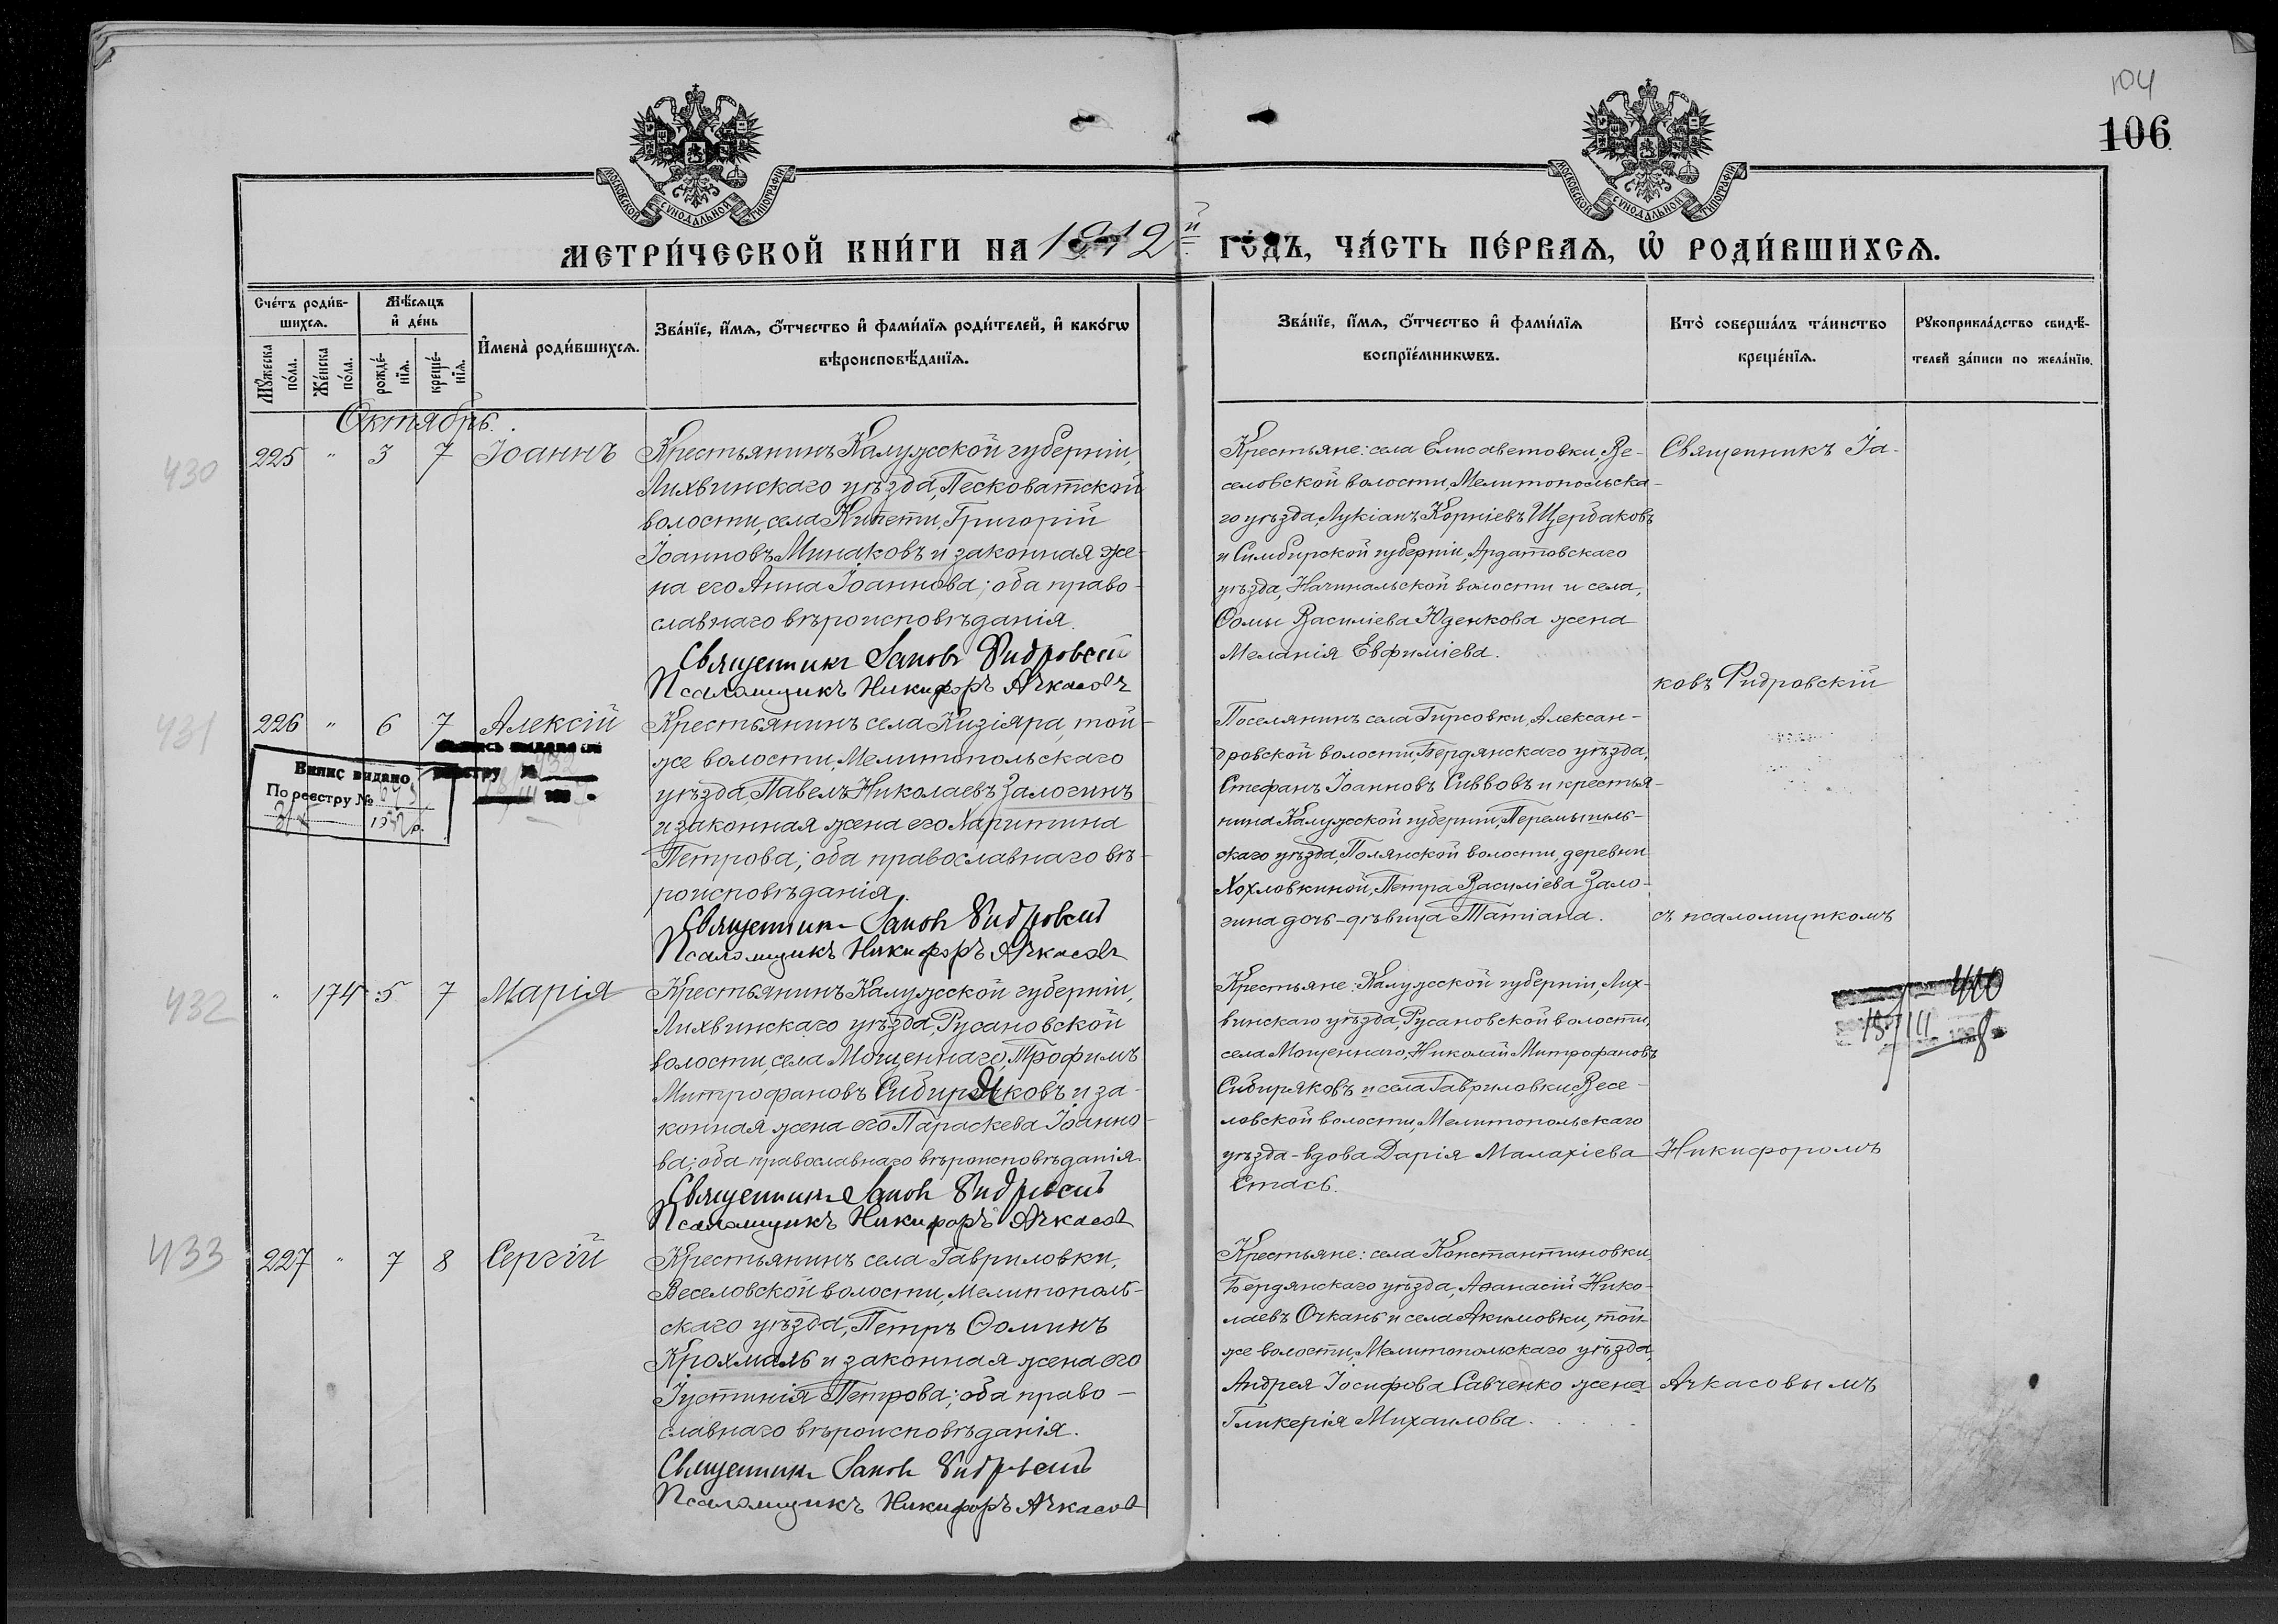 104
106
МОСКОВСКОЙ СѴНОДАЛЬНОЙ ТИПОГРАФІИ
МОСКОВСКОЙ СѴНОДАЛЬНОЙ ТИПОГРАФІИ
МЕТРИ́ЧЕСКОЙ КНИ́ГИ НА 1912й ГО́ДЪ, ЧА́СТЬ ПЕ́РВАѦ, Ѡ҆ РОДИ́ВШИХСѦ.
Сче́тъ роди́в-
шихсѧ.
Мѣ́сѧцъ
и҆ де́нь
Мꙋ́жеска
по́ла.
Же́нска
по́ла.
рожде́-
нїѧ.
креще́-
нїѧ.
И҆мена̀ роди́вшихсѧ.
Зва́нїе, и҆́мѧ, ѻ҆́тчество и҆ фами́лїѧ роди́телей, и҆ како́гѡ
вѣроисповѣ́данїѧ.
Зва́нїе, и҆́мѧ, ѻ҆́тчество и҆ фами́лїѧ
воспрїе́мникѡвъ.
Кто̀ соверша́лъ та́инство
креще́нїѧ.
Рꙋкоприкла́дство свидѣ́-
телей за́писи по жела́нїю.
Октябрь.
430
225 " 3 7 Іоаннъ
Крестьянинъ Калужской губерніи,
Лихвинскаго уѣзда, Песковатской
волости, села Кипети, Григорій
Іоанновъ Минаковъ и законная же-
на его Анна Іоаннова; оба право-
славнаго вѣроисповѣданія.
Священникъ Іаковъ Фидровскій
Псаломщикъ Никифоръ Ачкасовъ
Крестьяне: села Елисаветовки, Ве-
селовской волости, Мелитопольска-
го уѣзда, Лукіанъ Корніевъ Щербаковъ
и Симбирской губерніи, Ардатовскаго
уѣзда, Начинальской волости и села,
Ѳомы Василіева Юденкова жена
Меланія Евфиміева.
Священникъ Іа-
ковъ Фидровскій
431
226 " 6 7 Алексій
Випис видано
По реестру № 693
193 р.
реестру №
Крестьянинъ села Кизіяра, той-
же волости, Мелитопольскаго
уѣзда, Павелъ Николаевъ Залогинъ
и законная жена его Харитина
Петрова; оба православнаго вѣ-
роисповѣданія.
Священникъ Іаковъ Фидровскій
Псаломщикъ Никифоръ Ачкасовъ
Поселянинъ села Гирсовки, Алексан-
дровской волости, Бердянскаго уѣзда,
Стефанъ Іоанновъ Сиввовъ и крестья-
нина Калужской губерніи, Перемышль-
скаго уѣзда, Полянской волости, деревни
Хохловкиной, Петра Василіева Зало-
гина дочь-дѣвица Татіана.
съ псаломщикомъ
432
" 174 5 7 Марія
Крестьянинъ Калужской губерніи,
Лихвинскаго уѣзда, Русановской
волости, села Мощеннаго, Трофимъ
Митрофановъ Сибиряковъ и за-
конная жена его Параскева Іоанно-
ва; оба православнаго вѣроисповѣданія.
Священникъ Іаковъ Фидровскій
Псаломщикъ Никифоръ Ачкасовъ
Крестьяне: Калужской губерніи, Лих-
винскаго уѣзда, Русановской волости,
села Мощеннаго, Николай Митрофановъ
Сибиряковъ и села Гавриловки, Весе-
ловской волости, Мелитопольскаго
уѣзда - вдова Дарія Малахіева
Стась.
Никифоромъ
433
227 " 7 8 Сергій
Крестьянинъ села Гавриловки,
Веселовской волости, Мелитополь-
скаго уѣзда, Петръ Ѳоминъ
Крохмаль и законная жена его
Іустинія Петрова; оба право-
славнаго вѣроисповѣданія.
Священникъ Іаковъ Фидровскій
Псаломщикъ Никифоръ Ачкасовъ
Крестьяне: села Константиновки,
Бердянскаго уѣзда, Аѳанасій Нико-
лаевъ Очкань и села Акимовки, той-
же волости, Мелитопольскаго уѣзда,
Андрея Іосифова Савченко жена
Гликерія Михаилова.
Ачкасовымъ